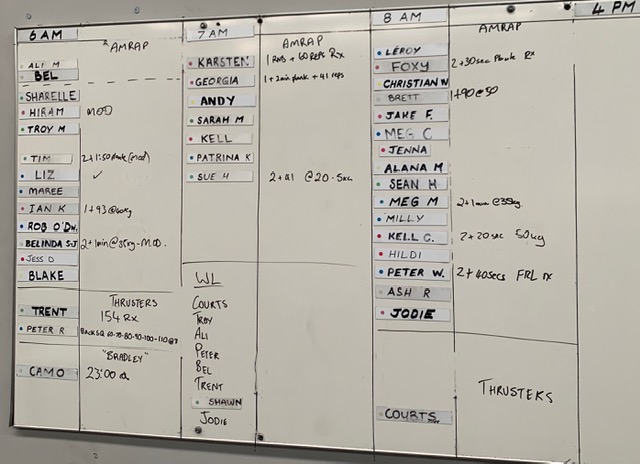 6 AM
AMRAP
ALI M
BEL
SHARELLE
HIRAM MOD
TROY M
TIM 2+1:50 plank (mod)
LIZ ✓
MAREE
IAN K 1+93 @60kg
ROB O'DW.
BELINDA S-J 2+1min @35kg-MOD.
JESS D
BLAKE
THRUSTERS
TRENT 154 Rx
PETER R BACK SQ 60-70-80-90-100-110
"BRADLEY"
CAMO 23:00
7 AM
AMRAP
KARSTEN 1 RND + 60 REPS Rx
GEORGIA 1+2min plank +41 reps
ANDY
SARAH M
KELL
PATRINA K
SUE H 2+41 @20.5kg
WL
COURTS
TROY
ALI
PETER
BEL
TRENT
SHAWN
JODIE
8 AM
AMRAP
LEROY
FOXY 2+30sec Plank Rx
CHRISTIAN W
BRETT 1+90@50
JAKE F.
MEG C
JENNA
ALANA M
SEAN H
MEG M 2+1min @35kg
MILLY
KELL C. 2+20sec 50kg
HILDI
PETER W. 2+40secs FRL rx
ASH R
JODIE
THRUSTERS
COURTS
4 PM